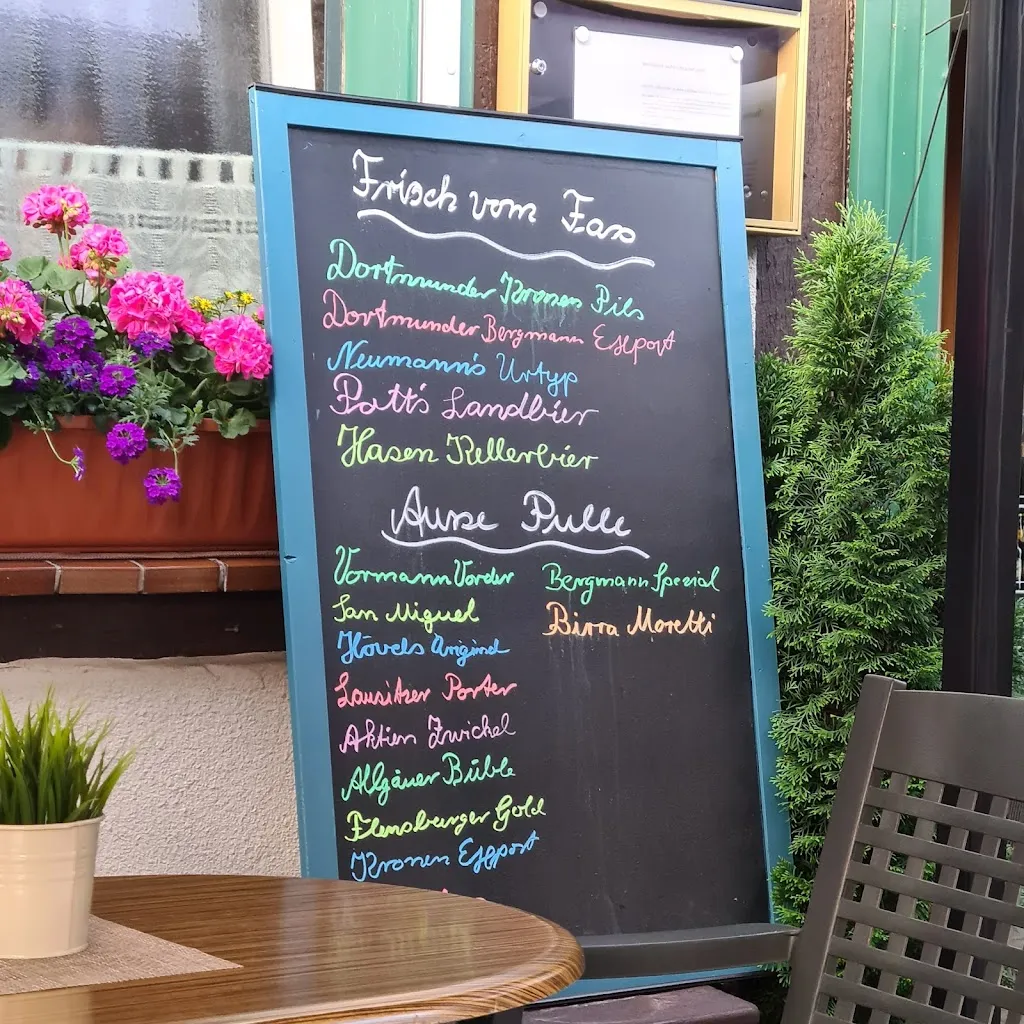 Frisch vom Fass
Dortmunder Kronen Pils
Dortmunder Bergmann Export
Neumann's Urtyp
Pott's Landbier
Hasen Kellerbier
Ausse Pulle
Vormann Vorder
San Miguel
Hövels Original
Lausitzer Porter
Aktien Zwickel
Allgäuer Büble
Flensburger Gold
Kronen Export
Bergmann Spezial
Birra Moretti